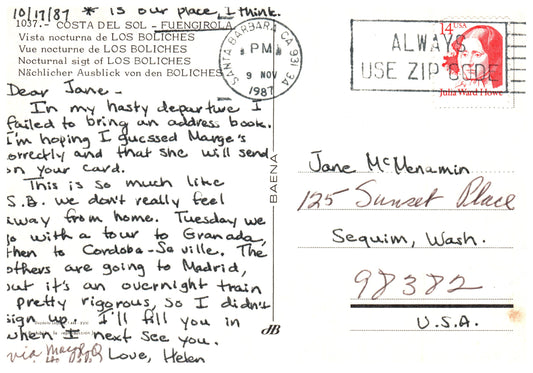 10/17/87 * is our place, I think.
1037.- COSTA DEL SOL - FUENGIROLA
Vista nocturna de LOS BOLICHES
Vue nocturne de LOS BOLICHES
Nocturnal sigt of LOS BOLICHES
Nächlicher Ausblick von den BOLICHES
Dear Jane -
In my hasty departure I
failed to bring an address book.
I'm hoping I guessed Marge's
orrectly and that she will send
on your card.
This is so much like
S.B. we don't really feel
away from home. Tuesday we
go with a tour to Granada,
then to Cordoba-Seville. The
others are going to Madrid,
but it's an overnight train
pretty rigorous, so I didn't
sign up. I'll fill you in
when I next see you.
Love, Helen
via
BAENA
dB
SANTA BARBARA CA 931 34
PM
9 NOV
1987
ALWAYS
USE ZIP CODE
14 USA
Julia Ward Howe
Jane McMenamin
125 Sunset Place
Sequim, Wash.
98382
U.S.A.